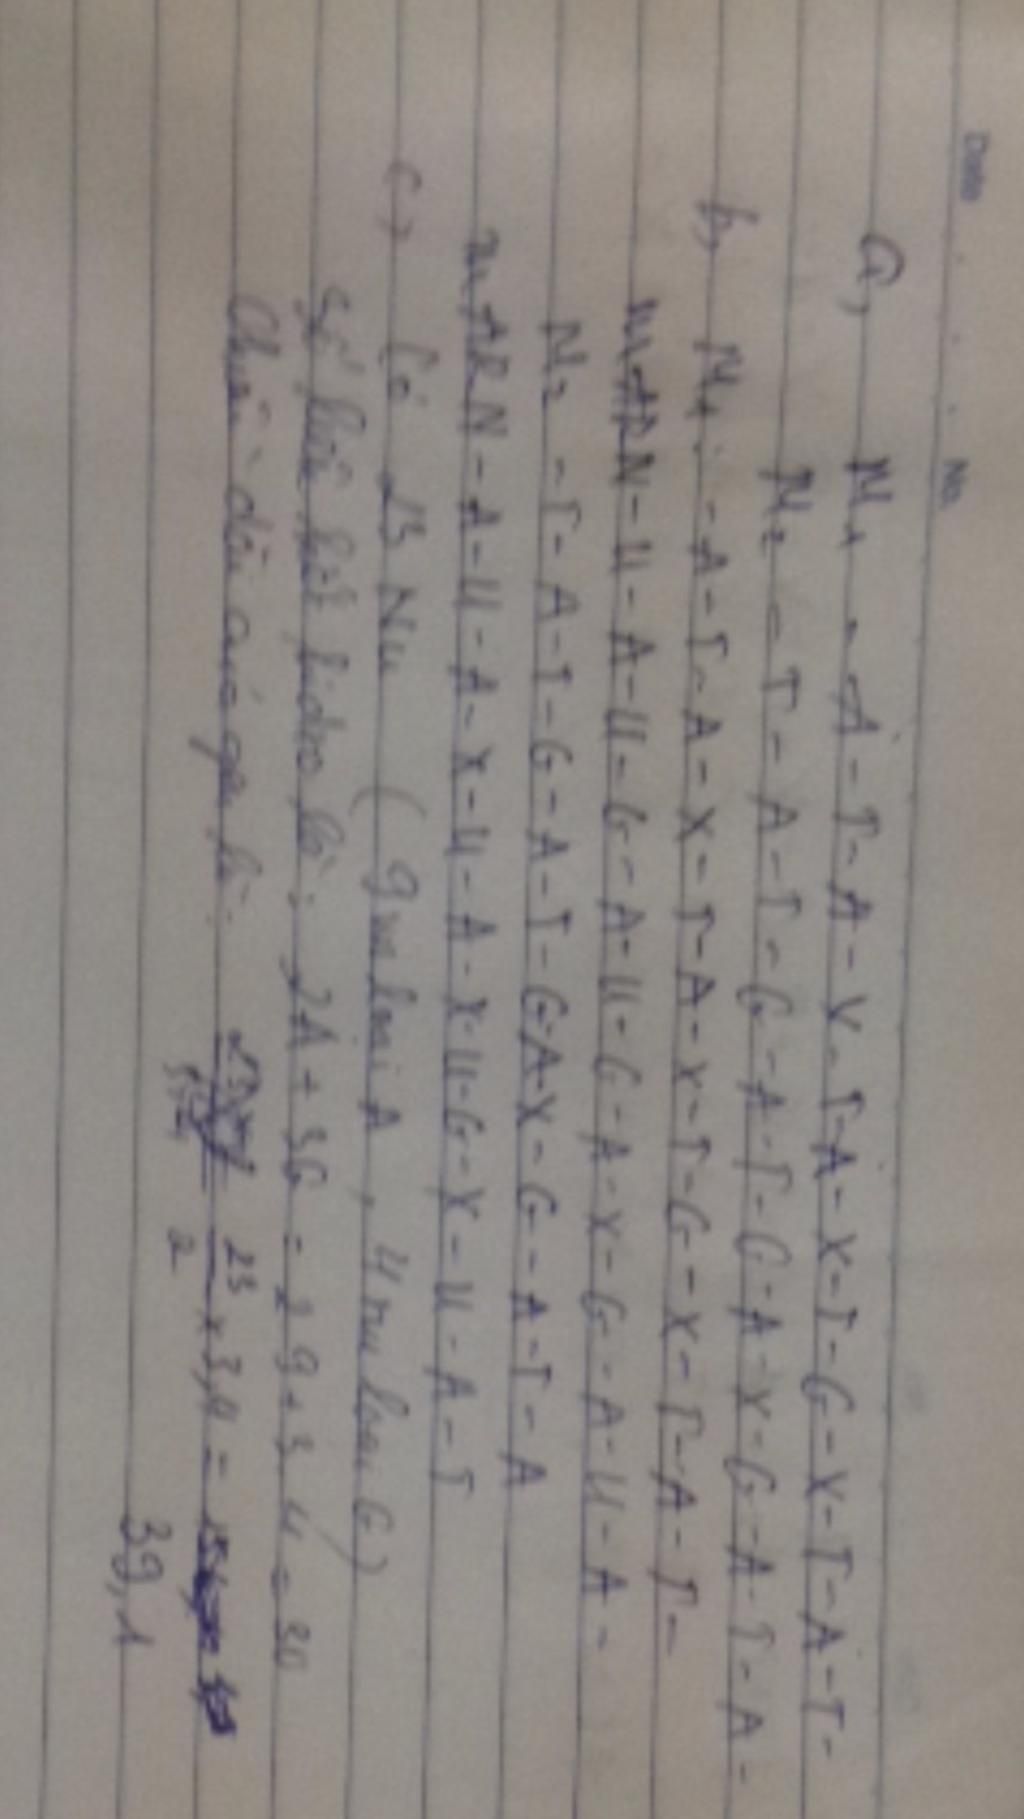 Date No.
a, M1 - A - T - A - X - T - A - X - T - G - X - T - A - T -
M2 - T - A - T - G - A - T - G - A - X - G - A - T - A -
b, M1: - A - T - A - X - T - A - X - T - G - X - T - A - T -
mARN - U - A - U - G - A - U - G - A - X - G - A - U - A -
M2 - T - A - T - G - A - T - G A - X - G - A - T - A
mARN - A - U - A - X - U - A - X U - G - X - U - A - T
c, Có 23 Nu (9 nu loại A, 4 nu loại G)
Số liên kết hidro là: 2A + 3G = 2 9 + 3 4 = 30
Chiều dài của gen là: 23/2 x 3,4 =
39,1